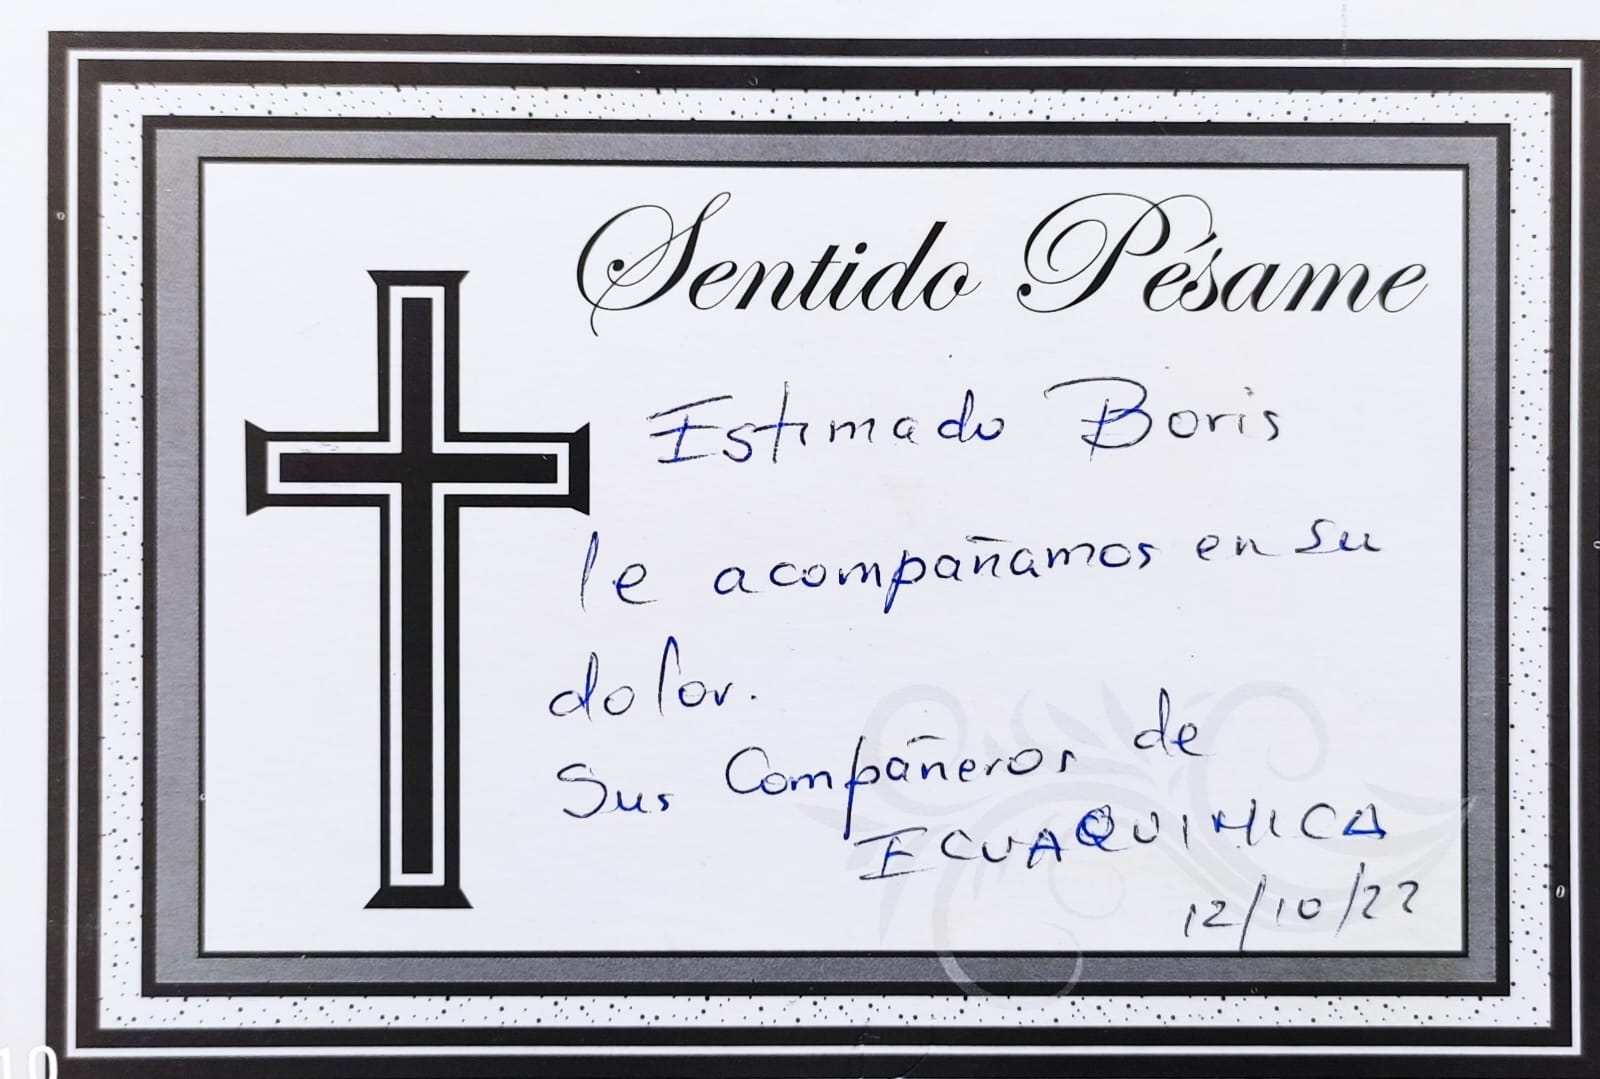 Sentido Pésame
Estimado Boris
le acompañamos en su
dolor.
Sus Compañeros de
ECUAQUIMICA
12/10/22
10